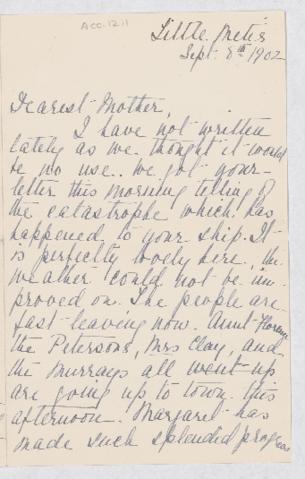 ACC. 1211
Little Metis
Sept. 8th 1902
Dearest Mother,
I have not written
lately as we thought it would
be no use. We got your
letter this morning telling of
the catastrophe which has
happened to your ship. It
is perfectly lovely here, the
weather could not be im-
proved on. The people are
fast leaving now. Aunt Florence
the Petersons, Mrs Clay, and
the Murrays all went up
are going up to town this
afternoon. Margaret has
made such splendid progress